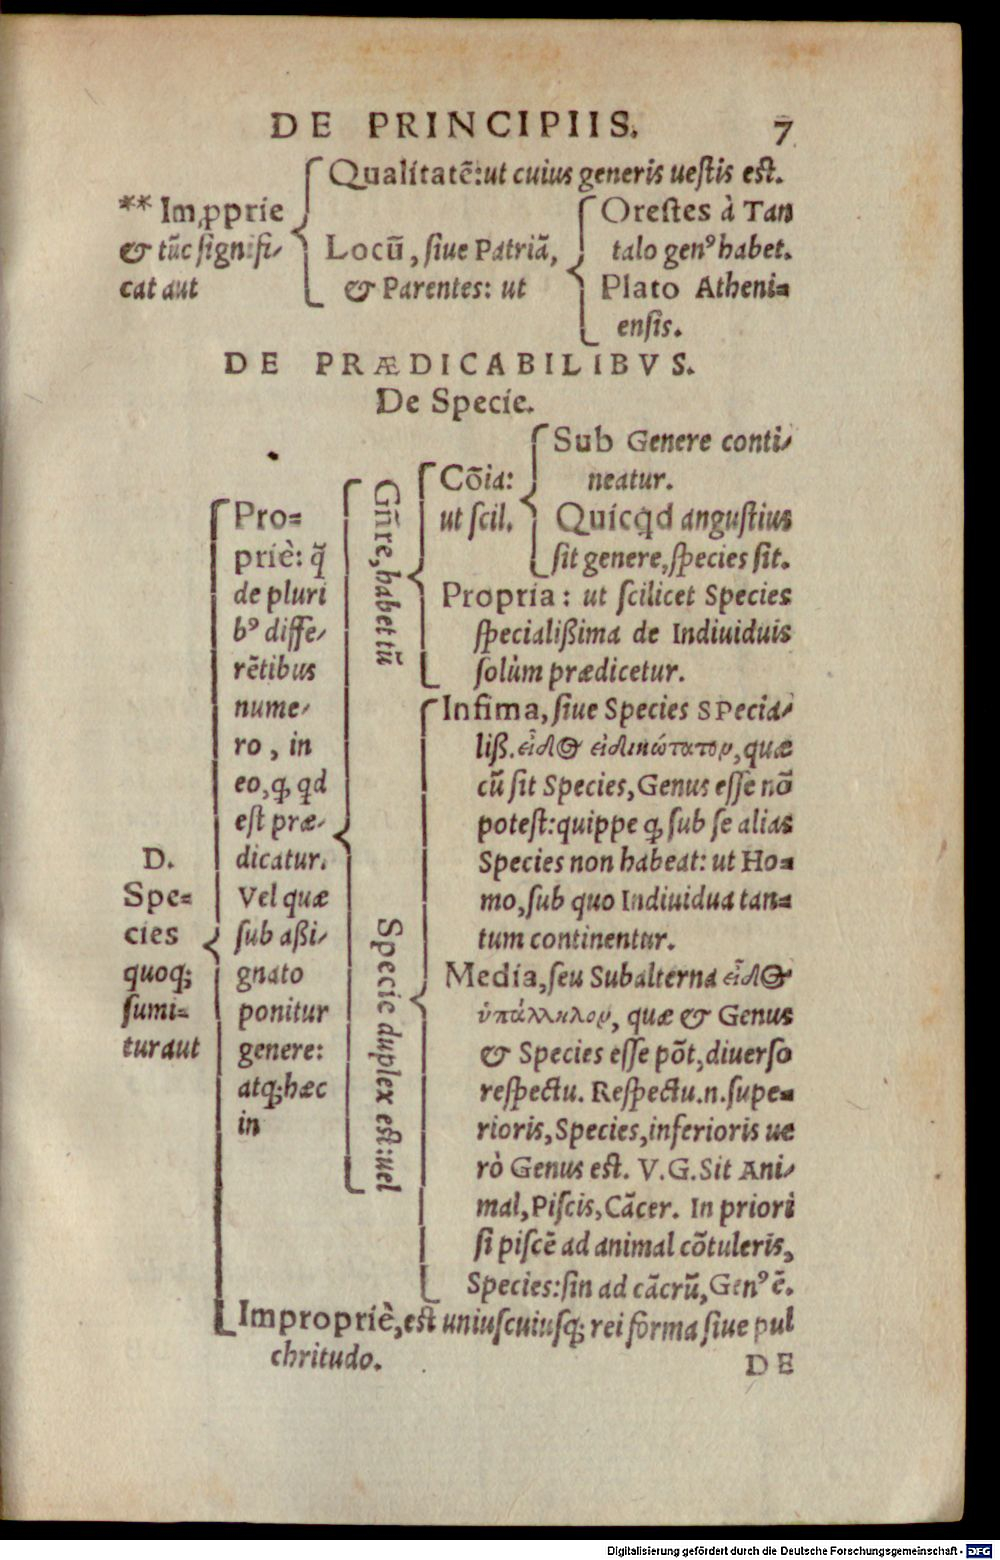 DE PRINCIPIIS. 7
** Im,pprie
& tũc signifi-
cat aut
Qualitatẽ: ut cuius generis uestis est.
Locũ, siue Patriã,
& Parentes: ut
Orestes à Tan
talo genꝰ habet.
Plato Atheni=
ensis.
DE PRÆDICABILIBVS.
De Specie.
D.
Spe=
cies
quoq;
sumi=
tur aut
Pro=
priè: q̃
de pluri
bꝰ diffe-
rẽtibus
nume-
ro, in
eo, ꝙ qd
est præ-
dicatur.
Vel quæ
sub aßi-
gnato
ponitur
genere:
atq; hæc
in
Gñre, habet tũ
Cõia:
ut scil.
Sub Genere conti-
neatur.
Quicqd angustius
sit genere, species sit.
Propria: ut scilicet Species
specialißima de Indiuiduis
solùm prædicetur.
Specie duplex est: uel
Infima, siue Species SPecia-
liß. εἶδος εἰδικώτατον, quæ
cũ sit Species, Genus esse nõ
potest: quippe ꝙ sub se alias
Species non habeat: ut Ho=
mo, sub quo Indiuidua tan=
tum continentur.
Media, seu Subalterna εἶδος
ὑπάλληλον, quæ & Genus
& Species esse põt, diuerso
respectu. Respectu .n. supe=
rioris, Species, inferioris ue
rò Genus est. V.G. Sit Ani-
mal, Piscis, Cãcer. In priori
si piscẽ ad animal cõtuleris,
Species: sin ad cãcrũ, Genꝰ ẽ.
Impropriè, est uniuscuiusq; rei forma siue pul
chritudo.
DE
Digitalisierung gefördert durch die Deutsche Forschungsgemeinschaft - DFG